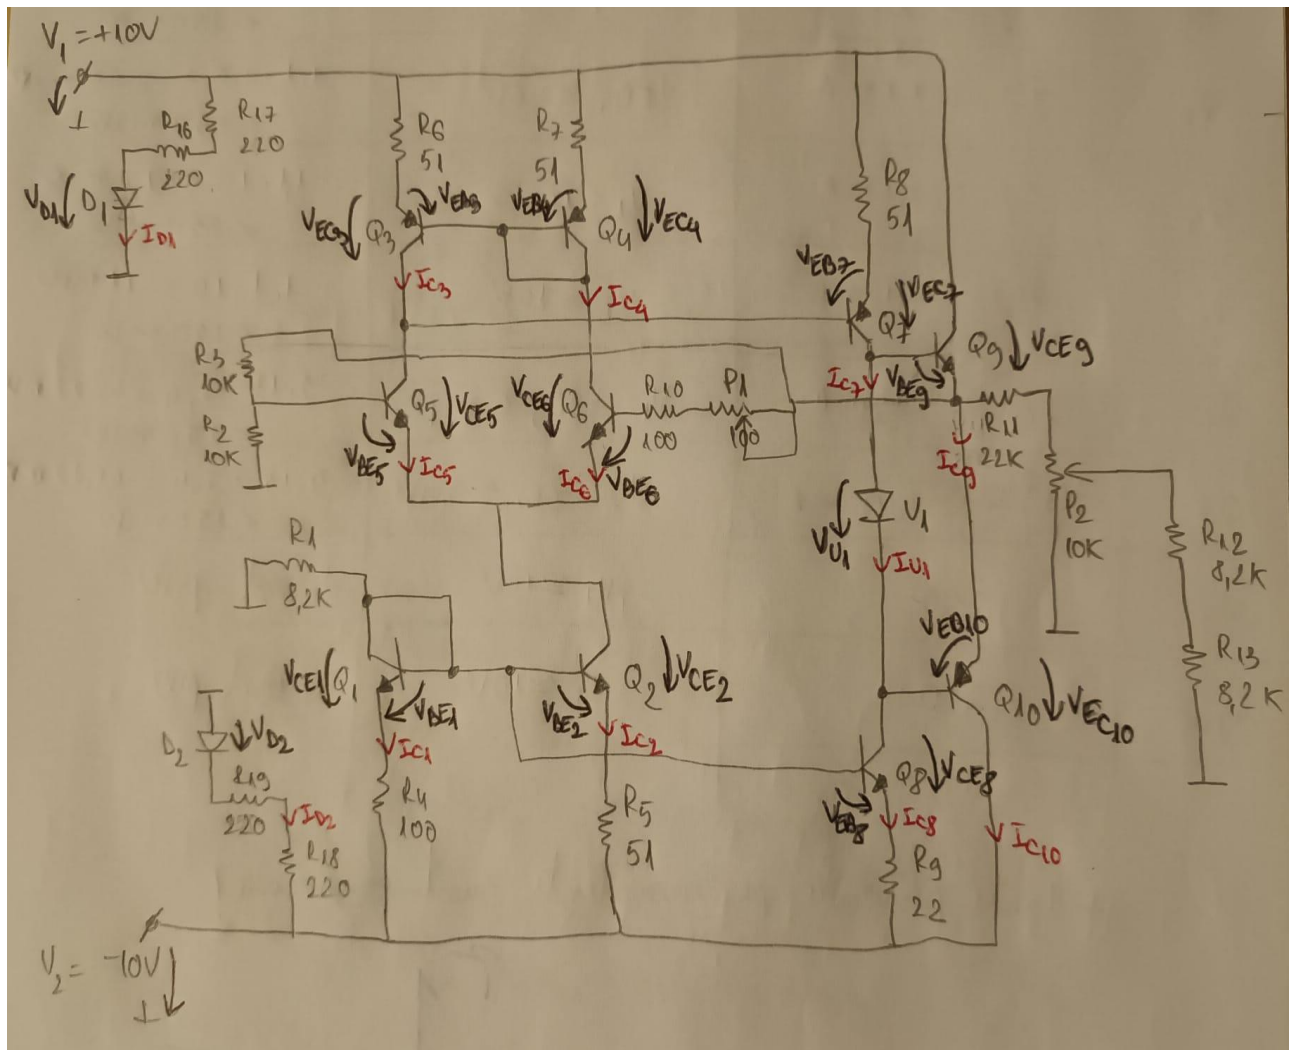 V1 = +10V
R16
220
R17
220
VD1
D1
ID1
R6
51
R7
51
R8
51
VEC3
Q3
VEB3
VEB4
Q4
VEC4
IC3
IC4
VEB7
VEC7
Q7
Q9
VCE9
IC7
VBE9
R3
10K
R2
10K
Q5
VCE5
VBE5
IC5
VCE6
Q6
R10
100
P1
100
IC6
VBE6
R11
22K
IC9
P2
10K
R12
8,2K
R13
8,2K
VU1
U1
IU1
R1
8,2K
VCE1
Q1
VBE1
IC1
VBE2
Q2
VCE2
IC2
VEB10
Q10
VEC10
D2
VD2
R19
220
ID2
R18
220
R4
100
R5
51
Q8
VCE8
VEB8
IC8
IC10
R9
22
V2 = -10V